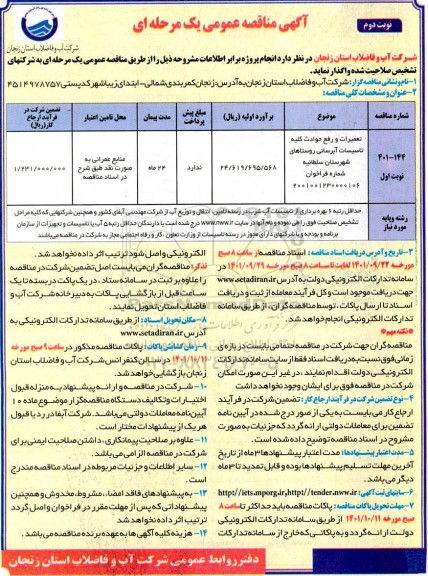 نوبت دوم
آگهی مناقصه عمومی یک مرحله ای
شرکت آب و فاضلاب استان زنجان
شرکت آب و فاضلاب استان زنجان در نظر دارد انجام پروژه برابر اطلاعات مشروحه ذیل را از طریق مناقصه عمومی یک مرحله ای به شرکتهای
تشخیص صلاحیت شده واگذار نماید.
۱- نام و نشانی مناقصه گزار: شرکت آب و فاضلاب استان زنجان به آدرس: زنجان کمربندی شمالی - ابتدای زیباشهر کدپستی ۴۵۱۴۹۷۸۷۵۷
۲- عنوان و مشخصات کلی مناقصه:
شماره مناقصه
موضوع
برآورد اولیه (ریال)
مبلغ پیش پرداخت
مدت پیمان
محل تامین اعتبار
تضمین شرکت در فرآیند ارجاع کار (ریال)
۴۰۱-۱۴۴
نوبت اول
تعمیرات و رفع حوادث کلیه
تاسیسات آبرسانی روستاهای
شهرستان سلطانیه
شماره فراخوان
۲۰۰۱۰۰۱۲۳۰۰۰۱۰۶
۲۴/۶۱۹/۶۹۵/۵۶۸
ندارد
۲۴ ماه
منابع عمرانی به
صورت نقد طبق شرح
در اسناد مناقصه
۱/۲۳۱/۰۰۰/۰۰۰
رشته و پایه
مورد نیاز
حداقل رتبه ۶ بهره برداری از تاسیسات آب شرب در رسته تامین، انتقال و توزیع آب از شرکت مهندسی آبفای کشور و همچنین شرکتهایی که کلیه مراحل
تشخیص صلاحیت فوق را طی نموده و نام آنها در سایت www.nww.ir درج شده است یا دارندگان حداقل رتبه ۵ آب یا تاسیسات و تجهیزات از سازمان
برنامه و بودجه و یا شرکتهای دارای مجوز در رسته تاسیسات از وزارت تعاون، کار و رفاه اجتماعی مجاز به شرکت در مناقصه می باشند
۳- تاریخ و آدرس دریافت اسناد مناقصه: اسناد مناقصه از ساعت ۸ صبح
مورخه ۱۴۰۱/۰۹/۲۲ لغایت تا ساعت ۸ صبح مورخه ۱۴۰۱/۰۹/۲۹ در
سامانه تدارکات الکترونیکی دولت به آدرس www.setadiran.ir
جهت دریافت موجود است و کل فرآیند معامله از ثبت و دریافت
اسناد تا ارسال پاکات، توسط مناقصه گران، از طریق سامانه
تدارکات الکترونیکی انجام خواهد شد.
*نکته مهم*
مناقصه گران جهت شرکت در مناقصه می بایست در بازه ی
زمانی فوق نسبت به دریافت اسناد فقط از سایت سامانه تدارکات
الکترونیکی دولت اقدام نمایند، در غیر این صورت امکان
شرکت در مناقصه فوق برای ایشان وجود نخواهد داشت
۴- نوع تضمین شرکت در فرآیند ارجاع کار: تضمین شرکت در فرآیند
ارجاع کار می بایست به یکی از صور درج شده در آیین نامه
تضمین برای معاملات دولتی ارائه گردد که جزئیات به صورت
مشروح در اسناد مناقصه توضیح داده شده است.
۵- مدت اعتبار پیشنهادها: مدت اعتبار پیشنهادها ۳ ماه از تاریخ
آخرین مهلت تسلیم پیشنهادها بوده و قابل تمدید تا ۳ ماه
دیگر می باشد.
۶- سایتهای ثبت آگهی: http://iets.mporg.ir, http://tender.nww.ir
۷- مهلت تحویل پاکات مناقصه: پاکات مناقصه باید حداکثر تا ساعت ۸
صبح مورخه ۱۴۰۱/۱۰/۱۱ از طریق سامانه تدارکات الکترونیکی
دولت ارائه گردد و به پاکاتی که خارج از سامانه تدارکات
الکترونیکی واصل شود ترتیب اثر داده نخواهد شد.
تذکر: مناقصه گران می بایست اصل تضمین شرکت در مناقصه
را علاوه بر ثبت در سامانه ستاد، در یک پاکت در بسته تا یک
ساعت قبل از بازگشایی پاکات به دبیرخانه شرکت آب و
فاضلاب استان تحویل نمایند.
۸- مکان تحویل اسناد: از طریق سامانه تدارکات الکترونیکی به
آدرس www.setadiran.ir
۹- زمان گشایش پاکات: پاکات مناقصه مذکور در ساعت ۹ صبح مورخه
۱۴۰۱/۱۰/۱۱ در سالن کنفرانس شرکت آب و فاضلاب استان
زنجان بازگشایی خواهد شد.
۱۰- شرکت در مناقصه و ارائه پیشنهاد به منزله قبول
اختیارات و تکالیف دستگاه مناقصه گزار موضوع ماده ۱۰
آیین نامه معاملات دولتی می باشد. شرکت آبفا در رد یا قبول
هر یک از پیشنهادات مختار است.
۱۱- علاوه بر صلاحیت پیمانکاری، داشتن صلاحیت ایمنی برای
شرکت در مناقصه الزامی می باشد.
۱۲- سایر اطلاعات و جزئیات مربوطه در اسناد مناقصه مندرج
است.
۱۳- به پیشنهادهای فاقد امضاء، مشروط، مخدوش و همچنین
پیشنهاداتی که پس از مهلت مقرر در فراخوان واصل گردد
ترتیب اثر داده نخواهد شد
۱۴- هزینه کلیه آگهی ها به عهده برنده مناقصه می باشد.
دفتر روابط عمومی شرکت آب و فاضلاب استان زنجان